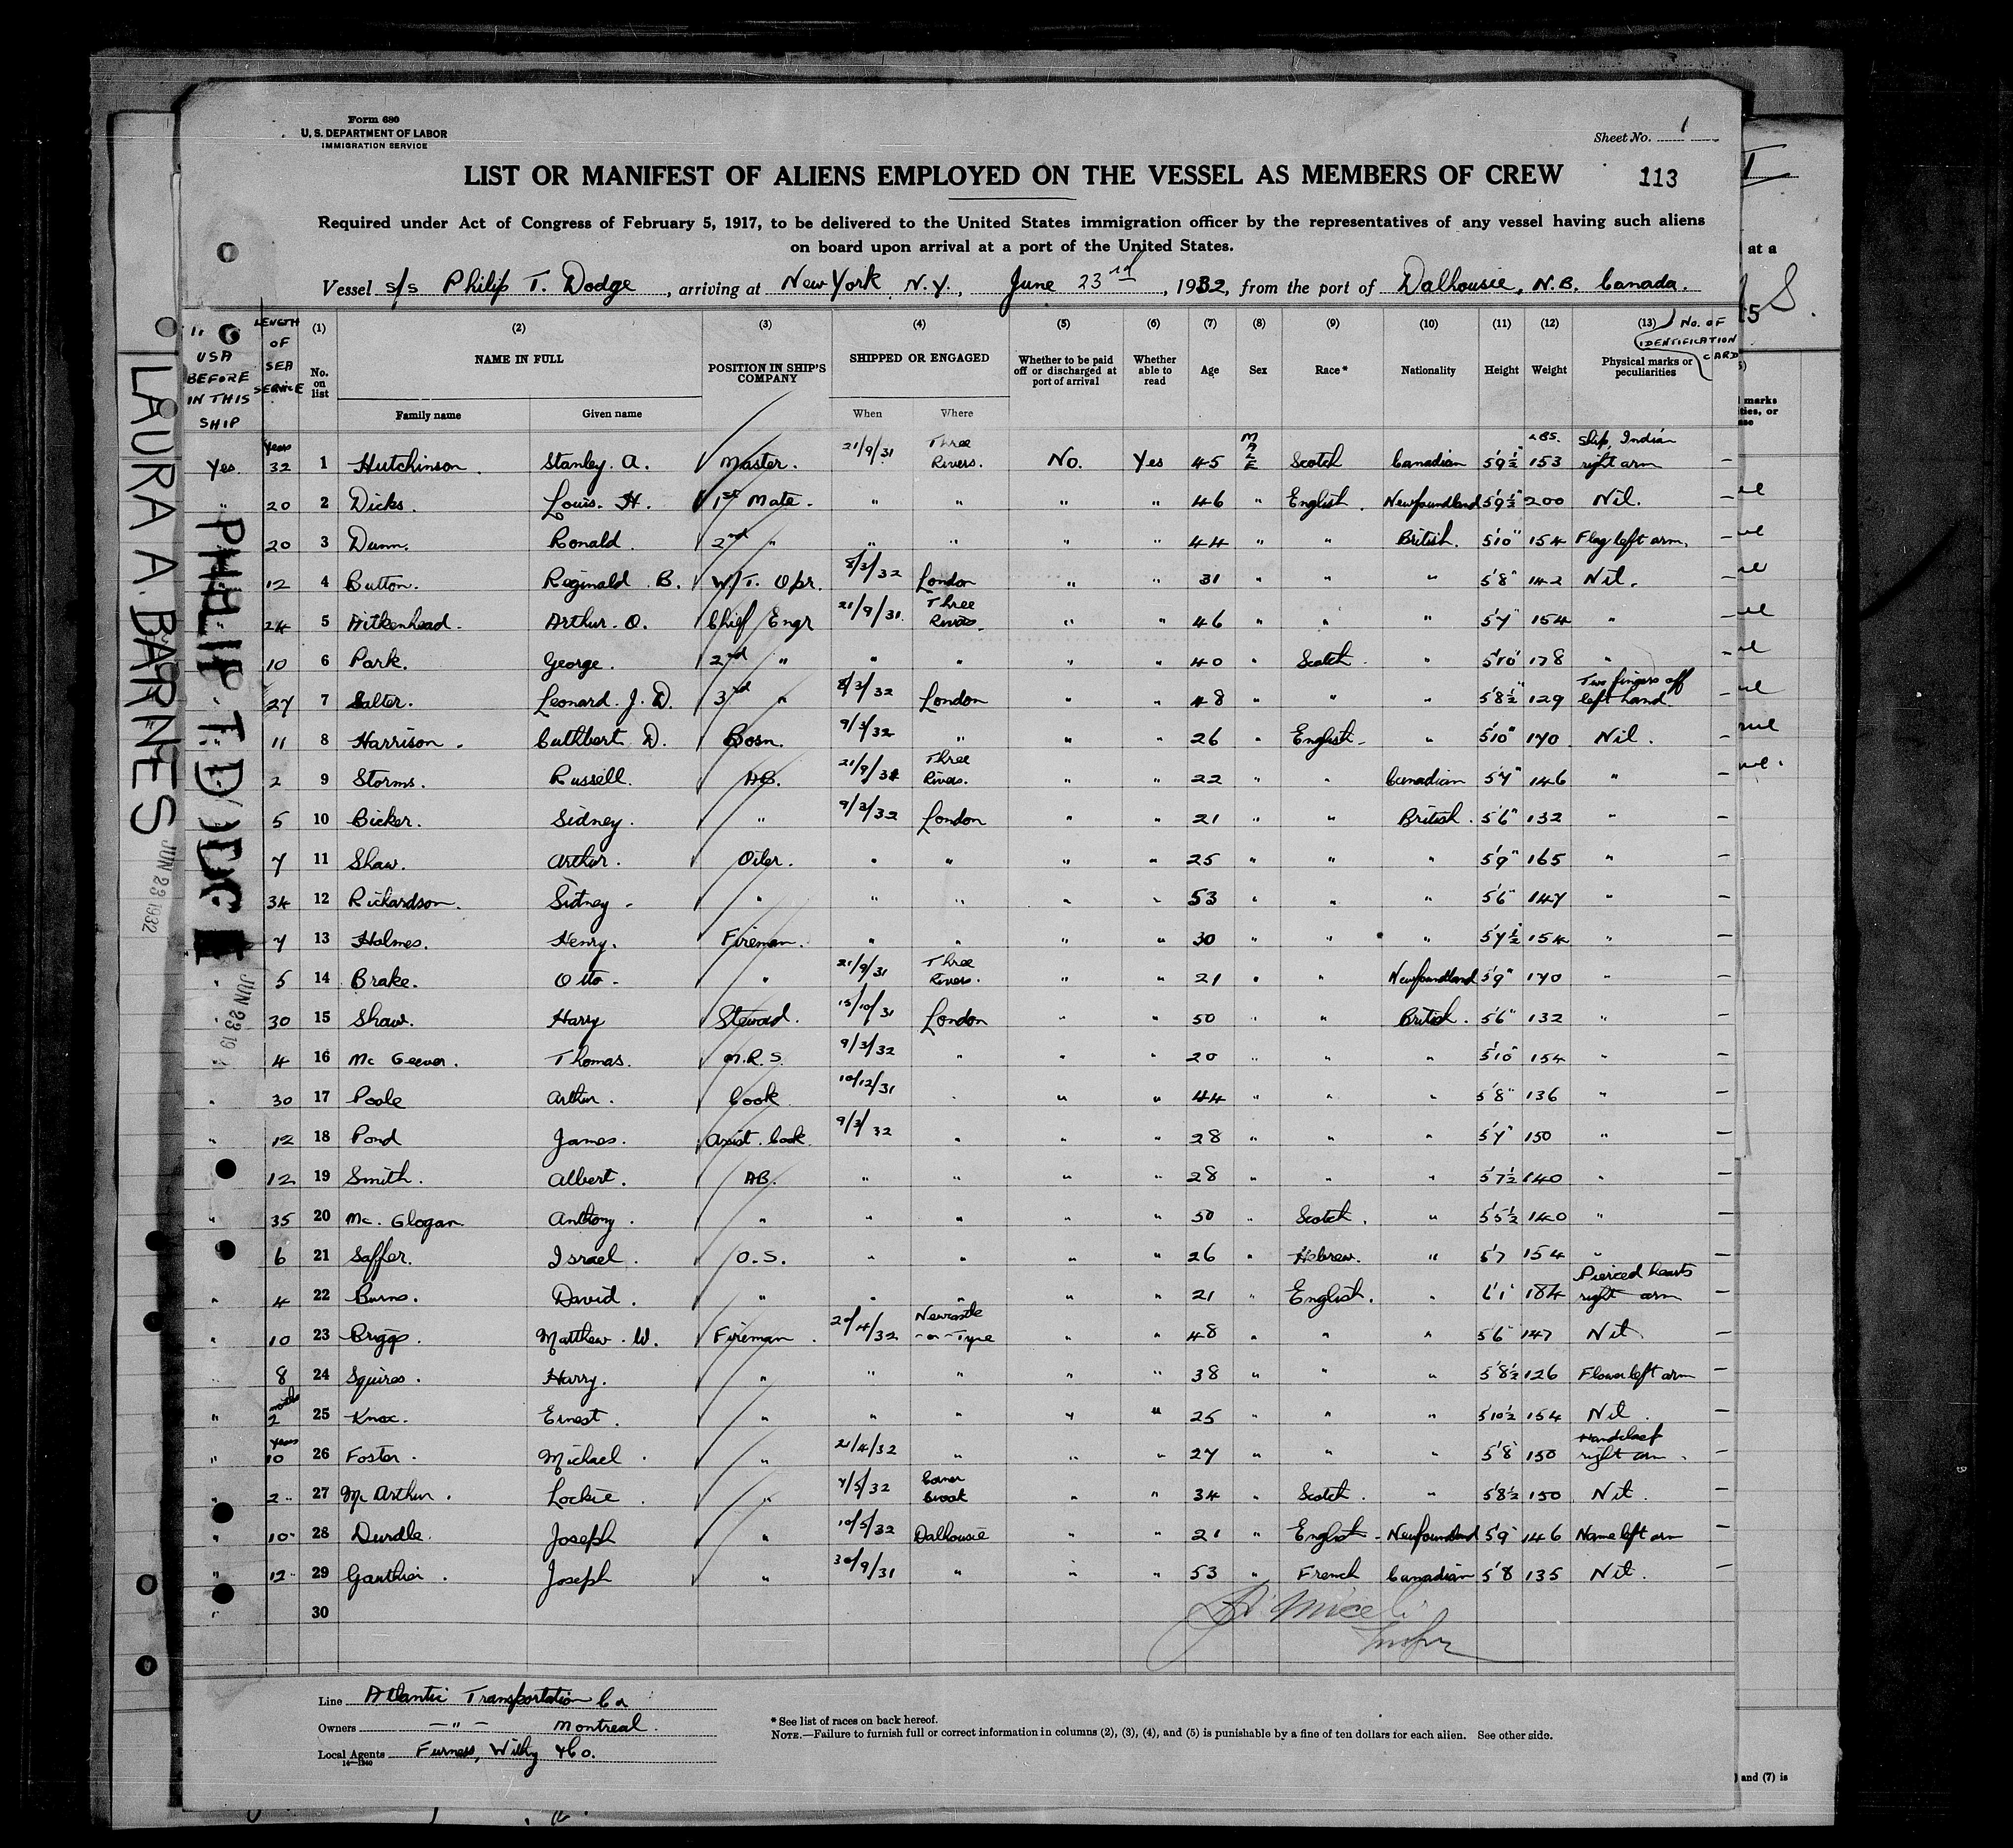 Form 680
U. S. DEPARTMENT OF LABOR
IMMIGRATION SERVICE
Sheet No. 1
LIST OR MANIFEST OF ALIENS EMPLOYED ON THE VESSEL AS MEMBERS OF CREW 113
Required under Act of Congress of February 5, 1917, to be delivered to the United States immigration officer by the representatives of any vessel having such aliens
on board upon arrival at a port of the United States.
Vessel S/S Philip T. Dodge, arriving at New York N.Y., June 23rd, 1932, from the port of Dalhousie, N.B. Canada.
USA BEFORE IN THIS SHIP
LENGTH OF SEA SERVICE
(1) (2) (3) (4) (5) (6) (7) (8) (9) (10) (11) (12) (13) No. OF IDENTIFICATION CARD
No. on list NAME IN FULL POSITION IN SHIP'S COMPANY SHIPPED OR ENGAGED Whether to be paid off or discharged at port of arrival Whether able to read Age Sex Race* Nationality Height Weight Physical marks or peculiarities
Family name Given name When Where
Yes. Years 32 1 Hutchinson. Stanley. A. Master. 21/9/31 Three Rivers. No. Yes 45 MALE Scotch Canadian 5'9½" LBS. 153 Ship, Indian right arm —
" 20 2 Dicks. Louis. H. 1st Mate. " " " " 46 " English. Newfoundland 5'9½" 200 Nil. —
20 3 Dunn. Ronald. 2nd " " " " " 44 " " British. 5'10" 154 Flag left arm. —
12 4 Button. Reginald. B. W/T. Opr. 8/3/32 London " " 31 " " " 5'8" 142 Nil. —
24 5 Aitkenhead. Arthur. O. Chief Engr 21/9/31. Three Rivers. " " 46 " " " 5'7" 154 " —
10 6 Park. George. 2nd " " " " " 40 " Scotch. " 5'10" 178 " —
27 7 Salter. Leonard. J. D. 3rd " 8/3/32 London " " 48 " " " 5'8½" 129 Two fingers off left hand —
11 8 Harrison. Cuthbert. D. Bosn. 9/3/32 " " " 26 " English. " 5'10" 170 Nil. —
2 9 Storms. Russell. AB. 21/9/31 Three Rivers. " " 22 " " Canadian 5'7" 146 " —
5 10 Bicker. Sidney. " 9/3/32 London " " 21 " " British. 5'6" 132 " —
7 11 Shaw. Arthur. Oiler. " " " " 25 " " " 5'9" 165 " —
34 12 Richardson. Sidney. " " " " " 53 " " " 5'6" 147 " —
7 13 Holmes. Henry. Fireman. " " " " 30 " " " 5'7½" 154 " —
" 5 14 Brake. Otto. " 21/9/31 Three Rivers. " " 21 " " Newfoundland 5'9" 170 " —
30 15 Shaw. Harry Steward. 15/10/31 London " " 50 " " British. 5'6" 132 " —
4 16 Mc Geever. Thomas. M.R.S. 9/3/32 " " " 20 " " " 5'10" 154 " —
" 30 17 Poole Arthur. Cook 10/12/31 " " " 44 " " " 5'8" 136 " —
" 12 18 Pond James. Assist. Cook 9/3/32 " " " 28 " " " 5'7" 150 " —
12 19 Smith. Albert. AB. " " " " 28 " " " 5'7½ 140 " —
" 35 20 Mc. Glogan Anthony. " " " " " 50 " Scotch. " 5'5½ 140 " —
6 21 Saffer. Israel. O.S. " " " " 26 " Hebrew. " 5'7 154 " —
" 4 22 Burns. David. " " " " " 21 " English. " 6'1" 184 Pierced hearts right arm —
" 10 23 Briggs. Matthew. W. Fireman. 20/4/32 Newcastle -on-Tyne " " 48 " " " 5'6" 147 Nil —
8 24 Squires. Harry. " " " " " 38 " " " 5'8½ 126 Flower left arm —
" months 2 25 Knox. Ernest. " " " " " 25 " " " 5'10½ 154 Nil. —
" Years 10 26 Foster. Michael. " 21/4/32 " " " 27 " " " 5'8" 150 Handclasp right arm. —
" 2 27 Mc Arthur. Lockie. " 7/5/32 Corner Brook " " 34 " Scotch. " 5'8½ 150 Nil. —
" 10 28 Durdle. Joseph " 10/5/32 Dalhousie " " 21 " English Newfoundland 5'9" 146 Name left arm —
" 12 29 Gauthier. Joseph " 30/9/31 " " " 53 " French Canadian 5'8 135 Nil. —
" 30
Miceli
Line Atlantic Transportation Co
Owners — " — Montreal.
Local Agents Furness, Withy & Co.
14—1240
* See list of races on back hereof.
NOTE.—Failure to furnish full or correct information in columns (2), (3), (4), and (5) is punishable by a fine of ten dollars for each alien. See other side.
LAURA A. BARNES
JUN 23 1932
PHILIP T. DODGE
JUN 23 19
at a
S.
marks
and (7) is